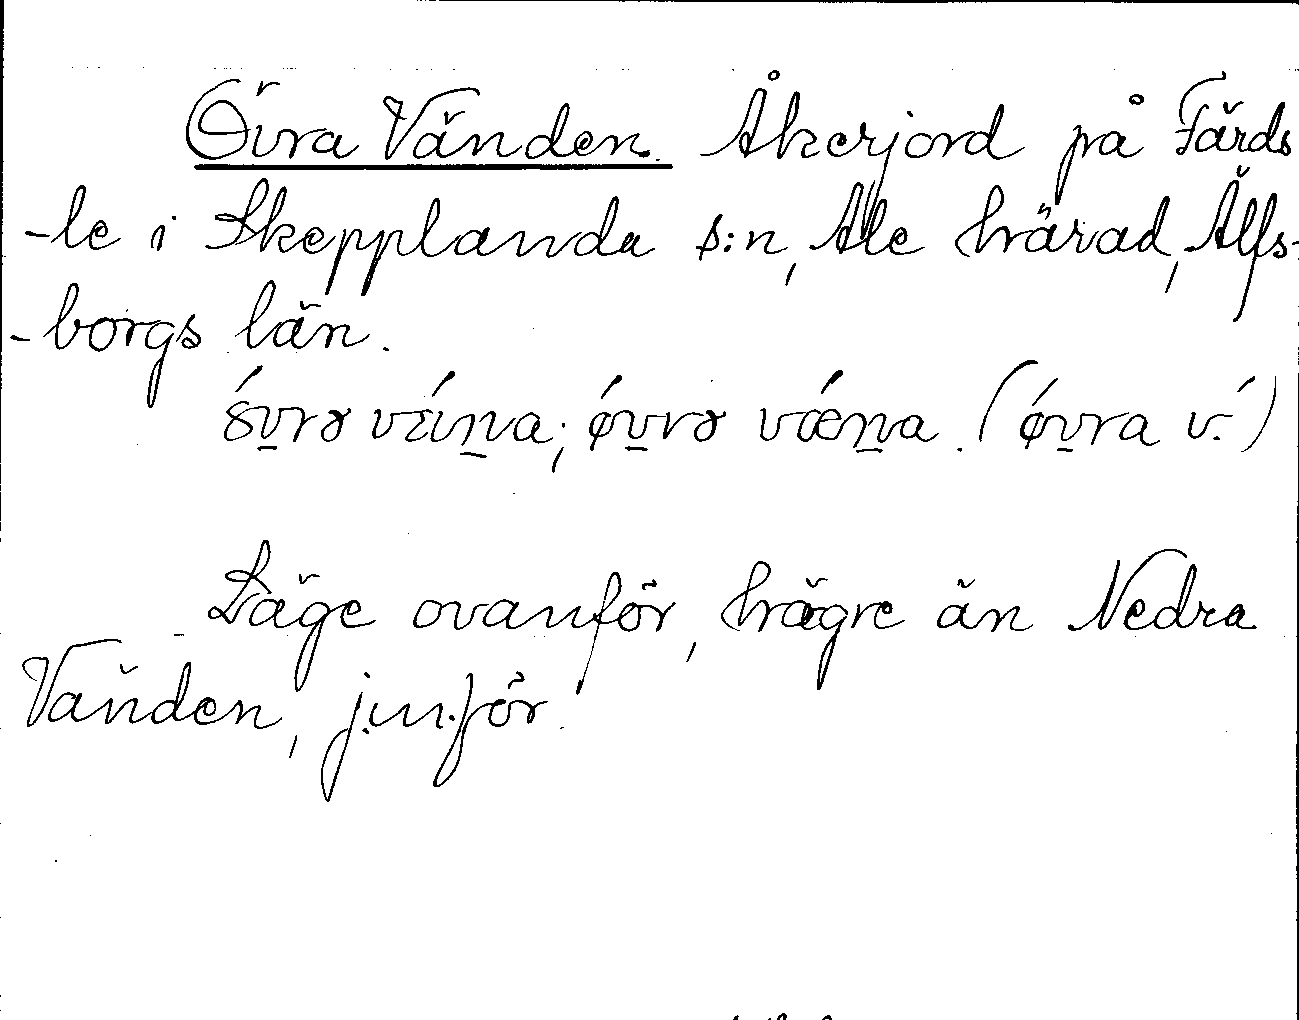 Övra Vänden. Åkerjord på Färds
-le i Skepplanda s:n, Ale härad, Älfs-
-borgs län.
(ǿvra v.́)
Läge ovanför, högre än Nedra
Vänden, jmför.